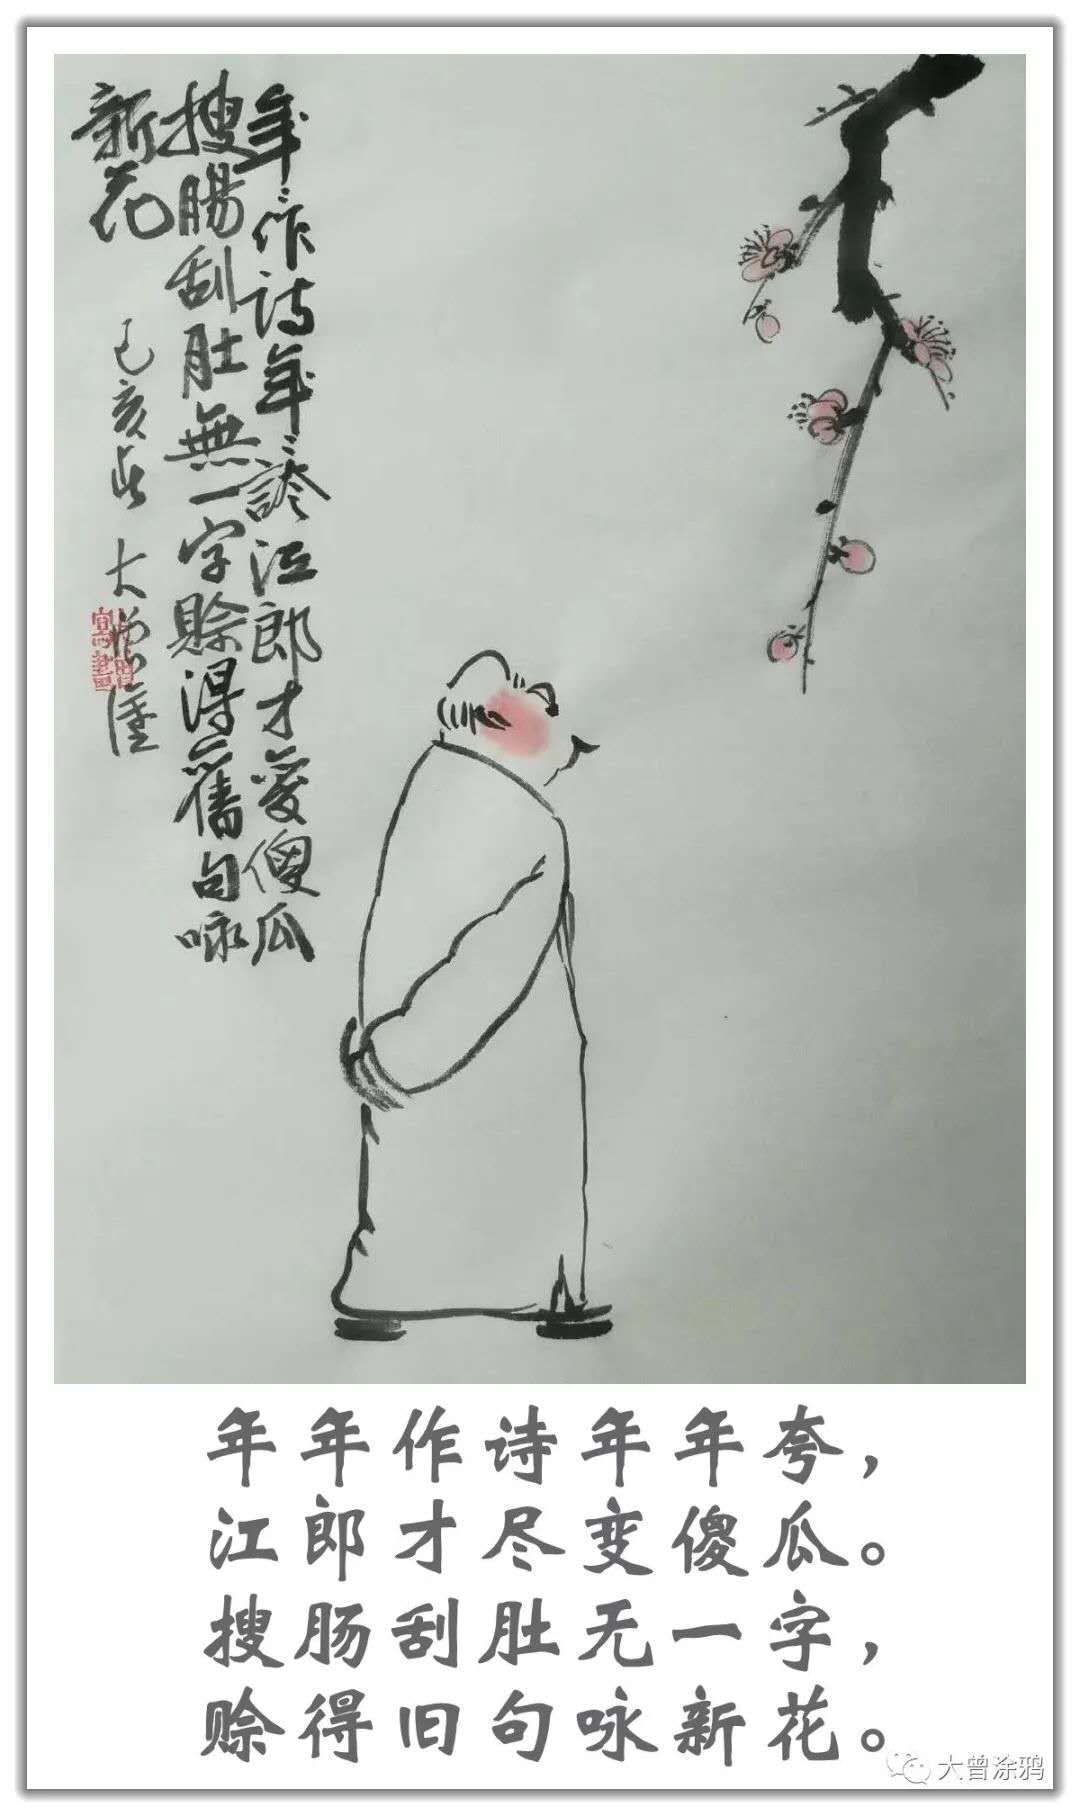 年〻作诗年〻誇江郎才傻瓜
搜腸刮肚無一字賒得舊句咏
新花
己亥春 大曾
年年作诗年年夸，
江郎才尽变傻瓜。
搜肠刮肚无一字，
赊得旧句咏新花。
大曾涂鸦